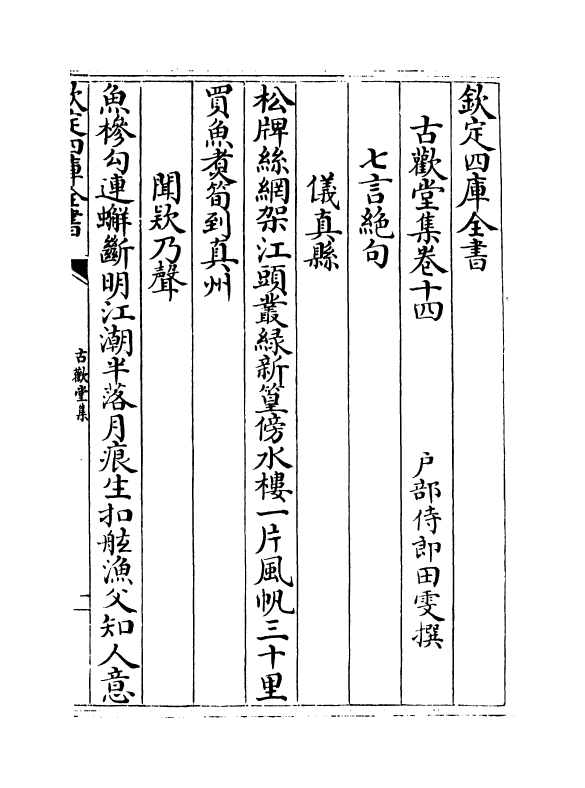 欽定四庫全書
古歡堂集卷十四
戶部侍郎田雯撰
七言絶句
儀真縣
松牌絲網架江頭叢緑新篁傍水樓一片風帆三十里
買魚煑筍到真州
聞欵乃聲
魚椮勾連蠏斷明江潮半落月痕生扣舷漁父知人意
欽定四庫全書
古歡堂集
一